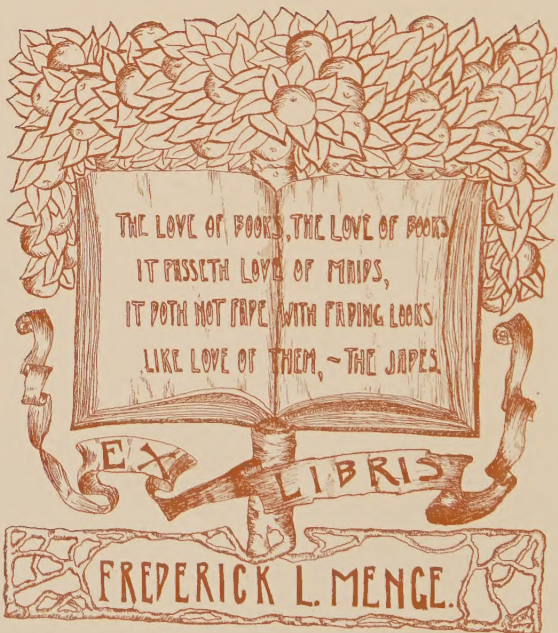 THE LOVE OF BOOKS, THE LOVE OF BOOKS
IT PASSETH LOVE OF MAIDS,
IT DOTH NOT FADE WITH FADING LOOKS
LIKE LOVE OF THEM, ~ THE JADES.
EX LIBRIS
FREDERICK L. MENGE.